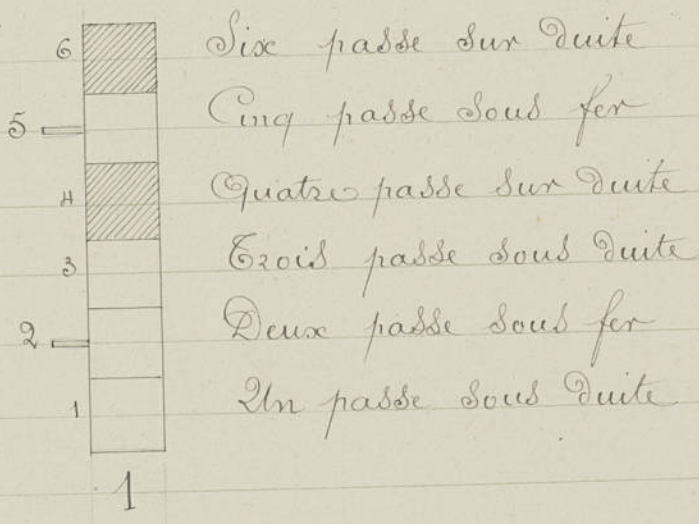 6 Six passe sur duite
5 Cinq passe sous fer
4 Quatre passe sur duite
3 Trois passe sous duite
2 Deux passe sous fer
1 Un passe sous duite
1